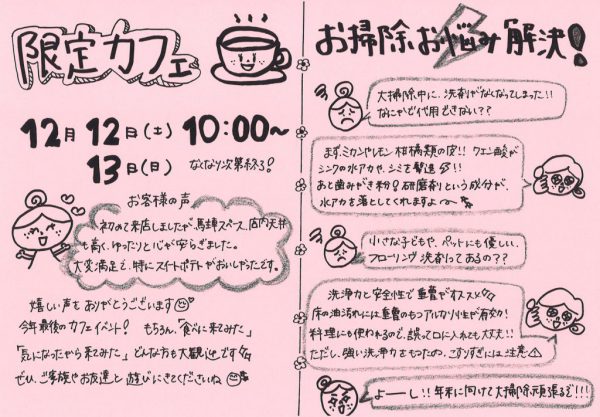 限定カフェ
12月12日(土) 10:00〜
13日(日) なくなり次第終了!
お客様の声
初めて来店しましたが、駐車スペース、店内天井
も高く、ゆったりと心が安らぎました。
大変満足で、特にスイートポテトがおいしかったです。
嬉しい声をありがとうございます
今年最後のカフェイベント? もちろん、「食べに来てみた」
「気になったから来てみた」どんな方も大歓迎です
ぜひ、ご家族やお友達と遊びにきてくださいね
お掃除お悩み解決!
大掃除中に、洗剤がなくなってしまった!!
なにかで代用できない??
まず、ミカンやレモン 柑橘類の皮!! クエン酸が
シンクの水アカや、シミを撃退!!
あと歯みがき粉? 研磨剤という成分が、
水アカを落としてくれますよ〜
小さな子どもや、ペットにも優しい、
フローリング洗剤ってあるの??
洗浄力と安全性で重曹がオススメ
床の油汚れには重曹のもつアルカリ性が有効!
料理にも使われるので、誤って口に入れても大丈夫!!
ただし、強い洗浄力をもつため、こすりすぎには注意
よーし!!年末に向けて大掃除頑張るぞ!!!